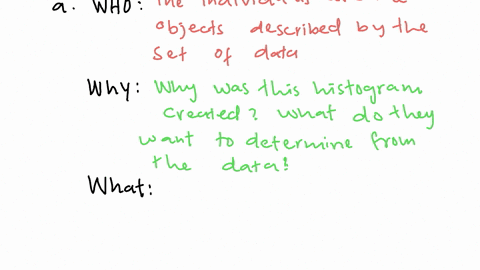 a. WHO: The individuals are the
objects described by the
set of data
Why: Why was this histogram
created? What do they
want to determine from
the data!
What: